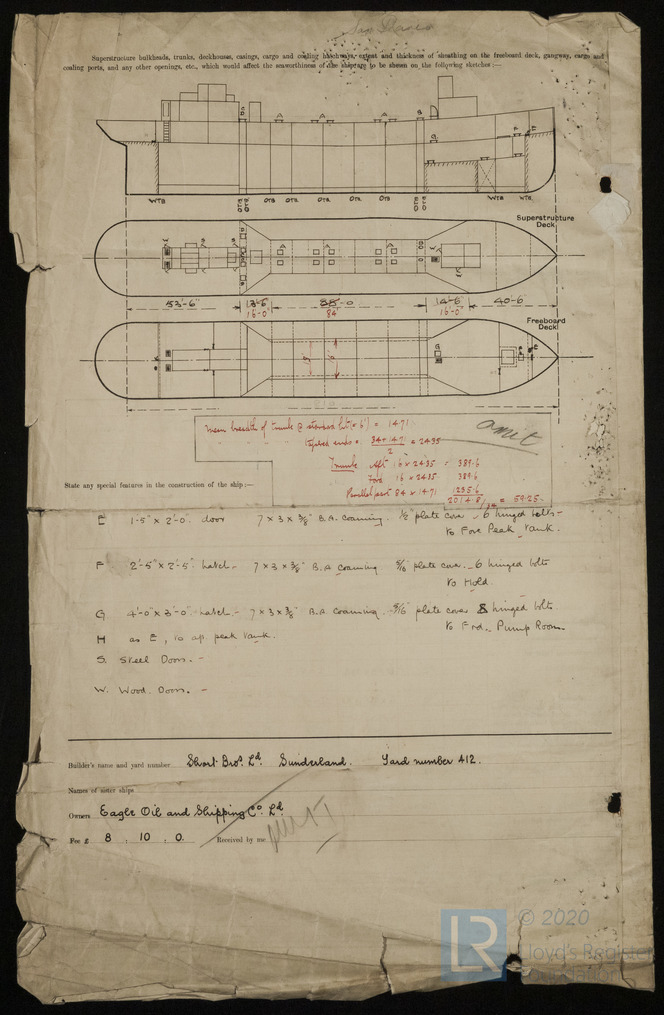 Superstructure bulkheads, trunks, deckhouses, casings, cargo and coaling hatchways, extent and thickness of sheathing on the freeboard deck, gangway, cargo and
coaling ports, and any other openings, etc., which would affect the seaworthiness of the ship are to be shewn on the following sketches:—
WTB OTB OTB OTB OTB OTB OTB OTB OTB OTB WTB WTB
Superstructure
Deck
53'-6" 13'-6" 88'-0 14'-6" 40'-6
16'-0" 84' 16'-0"
Freeboard
Deck
mean breadth of trunk @ standard ht (= 6') = 14.71
tapered ends = 34+14.71 = 24.35
2
Trunk aft 16 x 24.35 = 389.6
Ford 16 x 24.35 389.6
Parallel part 84 x 14.71 1235.6
2014.8/34 = 59.25
omit
State any special features in the construction of the ship:—
E 1-5" x 2'-0. door 7 x 3 x 3/8" B.A. Coaming. 1/2" plate cover - 6 hinged bolts -
to Fore Peak Tank.
F. 2'-5" x 2'-5" hatch - 7 x 3 x 3/8" B.A Coaming 5/16" plate cover - 6 hinged bolts
to Hold.
G 4'-0" x 3'-0" hatch - 7 x 3 x 3/8" B.A Coaming. 5/16" plate cover 8 hinged bolts
to Frd. Pump Room
H as E, to aft peak tank.
S. Steel Doors. -
W. Wood. Doors. -
Builder's name and yard number Short Bros. Ld. Sunderland. Yard number 412.
Names of sister ships
Owners Eagle Oil and Shipping Co. Ld.
Fee £ 8 . 10 . 0. Received by me
LR © 2020
Lloyd's Register
Foundation